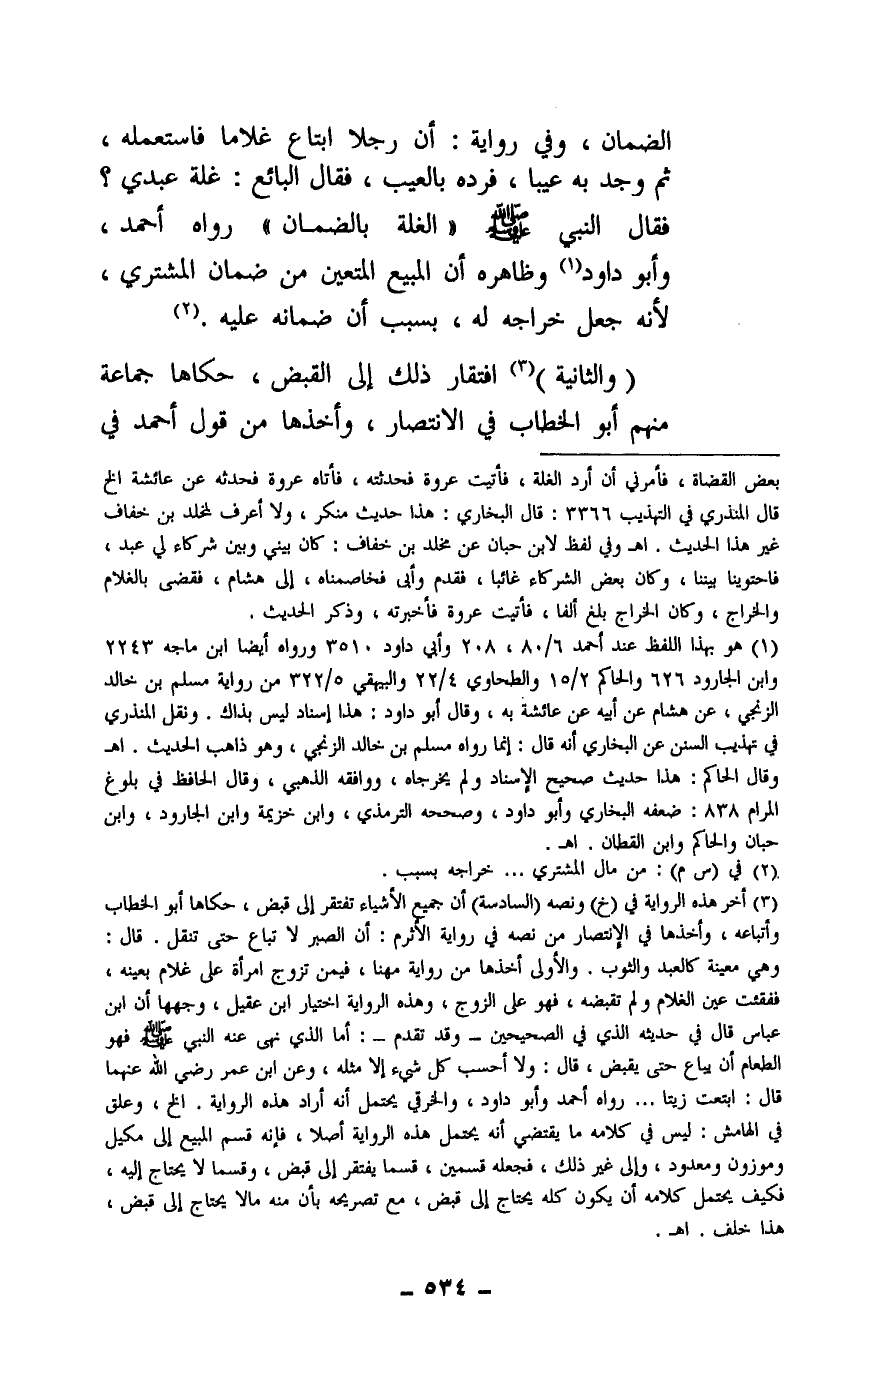 الضمان ، وفي رواية : أن رجلا ابتاع غلاما فاستعمله ،
ثم وجد به عيبا ، فرده بالعيب ، فقال البائع : غلة عبدي ؟
فقال النبي ﷺ « الغلة بالضمـان » رواه أحمد ،
وأبو داود(١) وظاهره أن المبيع المتعين من ضمان المشتري ،
لأنه جعل خراجه له ، بسبب أن ضمانه عليه .(٢)
( والثانية )(٣) افتقار ذلك إلى القبض ، حكاها جماعة
منهم أبو الخطاب في الانتصار ، وأخذها من قول أحمد في
بعض القضاة ، فأمرني أن أرد الغلة ، فأتيت عروة فحدثته ، فأتاه عروة فحدثه عن عائشة الخ
قال المنذري في التهذيب ٣٣٦٦ : قال البخاري : هذا حديث منكر ، ولا أعرف لمخلد بن خفاف
غير هذا الحديث . اهـ وفي لفظ لابن حبان عن مخلد بن خفاف : كان بيني وبين شركاء لي عبد ،
فاحتوينا بيننا ، وكان بعض الشركاء غائبا ، فقدم وأبى فخاصمناه ، إلى هشام ، فقضى بالغلام
والخراج ، وكان الخراج بلغ ألفا ، فأتيت عروة فأخبرته ، وذكر الحديث .
(١) هو بهذا اللفظ عند أحمد ٨٠/٦ ، ٢٠٨ وأبي داود ٣٥١٠ ورواه أيضا ابن ماجه ٢٢٤٣
وابن الجارود ٦٢٦ والحاكم ١٥/٢ والطحاوي ٢٢/٤ والبيهقي ٣٢٢/٥ من رواية مسلم بن خالد
الزنجي ، عن هشام عن أبيه عن عائشة به ، وقال أبو داود : هذا إسناد ليس بذاك . ونقل المنذري
في تهذيب السنن عن البخاري أنه قال : إنما رواه مسلم بن خالد الزنجي ، وهو ذاهب الحديث . اهـ
وقال الحاكم : هذا حديث صحيح الإسناد ولم يخرجاه ، ووافقه الذهبي ، وقال الحافظ في بلوغ
المرام ٨٣٨ : ضعفه البخاري وأبو داود ، وصححه الترمذي ، وابن خزيمة وابن الجارود ، وابن
حبان والحاكم وابن القطان . اهـ .
(٢) في (س م) : من مال المشتري ... خراجه بسبب .
(٣) أخر هذه الرواية في (خ) ونصه (السادسة) أن جميع الأشياء تفتقر إلى قبض ، حكاها أبو الخطاب
وأتباعه ، وأخذها في الإنتصار من نصه في رواية الأثرم : أن الصبر لا تباع حتى تنقل . قال :
وهي معينة كالعبد والثوب . والأولى أخذها من رواية مهنا ، فيمن تزوج امرأة على غلام بعينه ،
ففقئت عين الغلام ولم تقبضه ، فهو على الزوج ، وهذه الرواية اختيار ابن عقيل ، وجهها أن ابن
عباس قال في حديثه الذي في الصحيحين ـ وقد تقدم ـ : أما الذي نهى عنه النبي ﷺ فهو
الطعام أن يباع حتى يقبض ، قال : ولا أحسب كل شيء إلا مثله ، وعن ابن عمر رضي الله عنهما
قال : ابتعت زيتا ... رواه أحمد وأبو داود ، والخرقي يحتمل أنه أراد هذه الرواية . الخ ، وعلق
في الهامش : ليس في كلامه ما يقتضي أنه يحتمل هذه الرواية أصلا ، فإنه قسم المبيع إلى مكيل
وموزون ومعدود ، وإلى غير ذلك ، فجعله قسمين ، قسما يفتقر إلى قبض ، وقسما لا يحتاج إليه ،
فكيف يحتمل كلامه أن يكون كله يحتاج إلى قبض ، مع تصريحه بأن منه مالا يحتاج إلى قبض ،
هذا خلف . اهـ .
ـ ٥٣٤ ـ